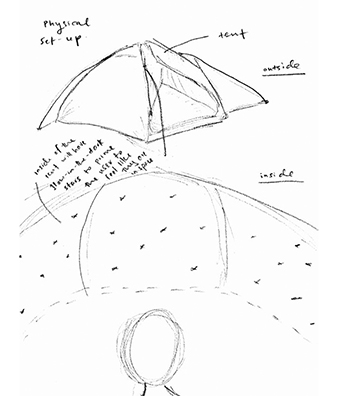 Physical
Set-up.
tent
outside
inside of the
tent will have
glow-in-the-dark
stars to prime
the user to
feel like
they are
in space
inside